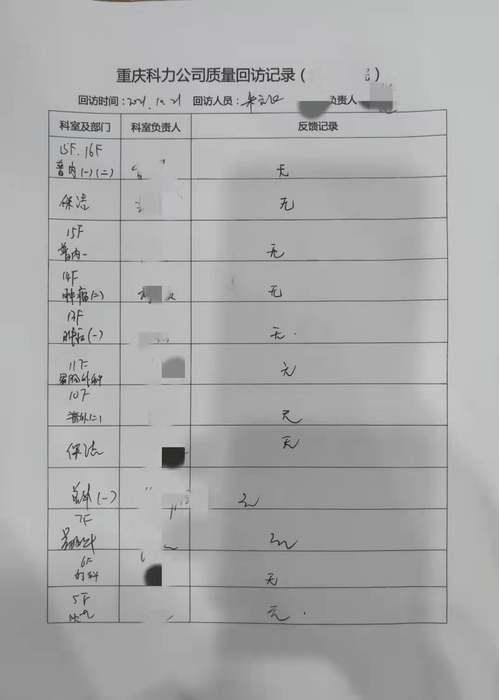 重庆科力公司质量回访记录（ ）
回访时间：2021.10.21 回访人员： 负责人
科室及部门 科室负责人 反馈记录
15F.16F
普内(一)(二) 无
保洁 无
15F
普内一 无
14F
肿瘤(二) 无
12F
肿瘤(一) 无.
11F
无
10F
普外(二) 无
保洁 无
(一) 无
7F
无
6F
妇科 无
5F
无.